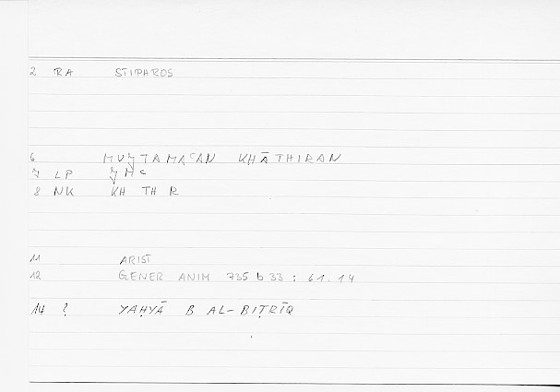 2 RA STIPHROS
6 MUJTAMAʿAN KHĀTHIRAN
7 LP JMʿ
8 NK KH TH R
11 ARIST
12 GENER ANIM 735 b 33 : 61.14
14 ? YAḤYĀ B AL-BIṬRĪQ